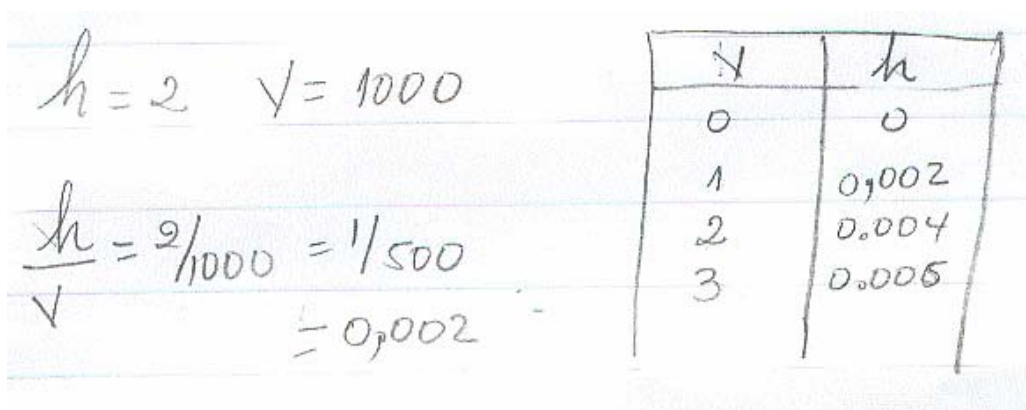 h = 2 V = 1000
h/V = 2/1000 = 1/500
= 0,002
V h
0 0
1 0,002
2 0.004
3 0.006